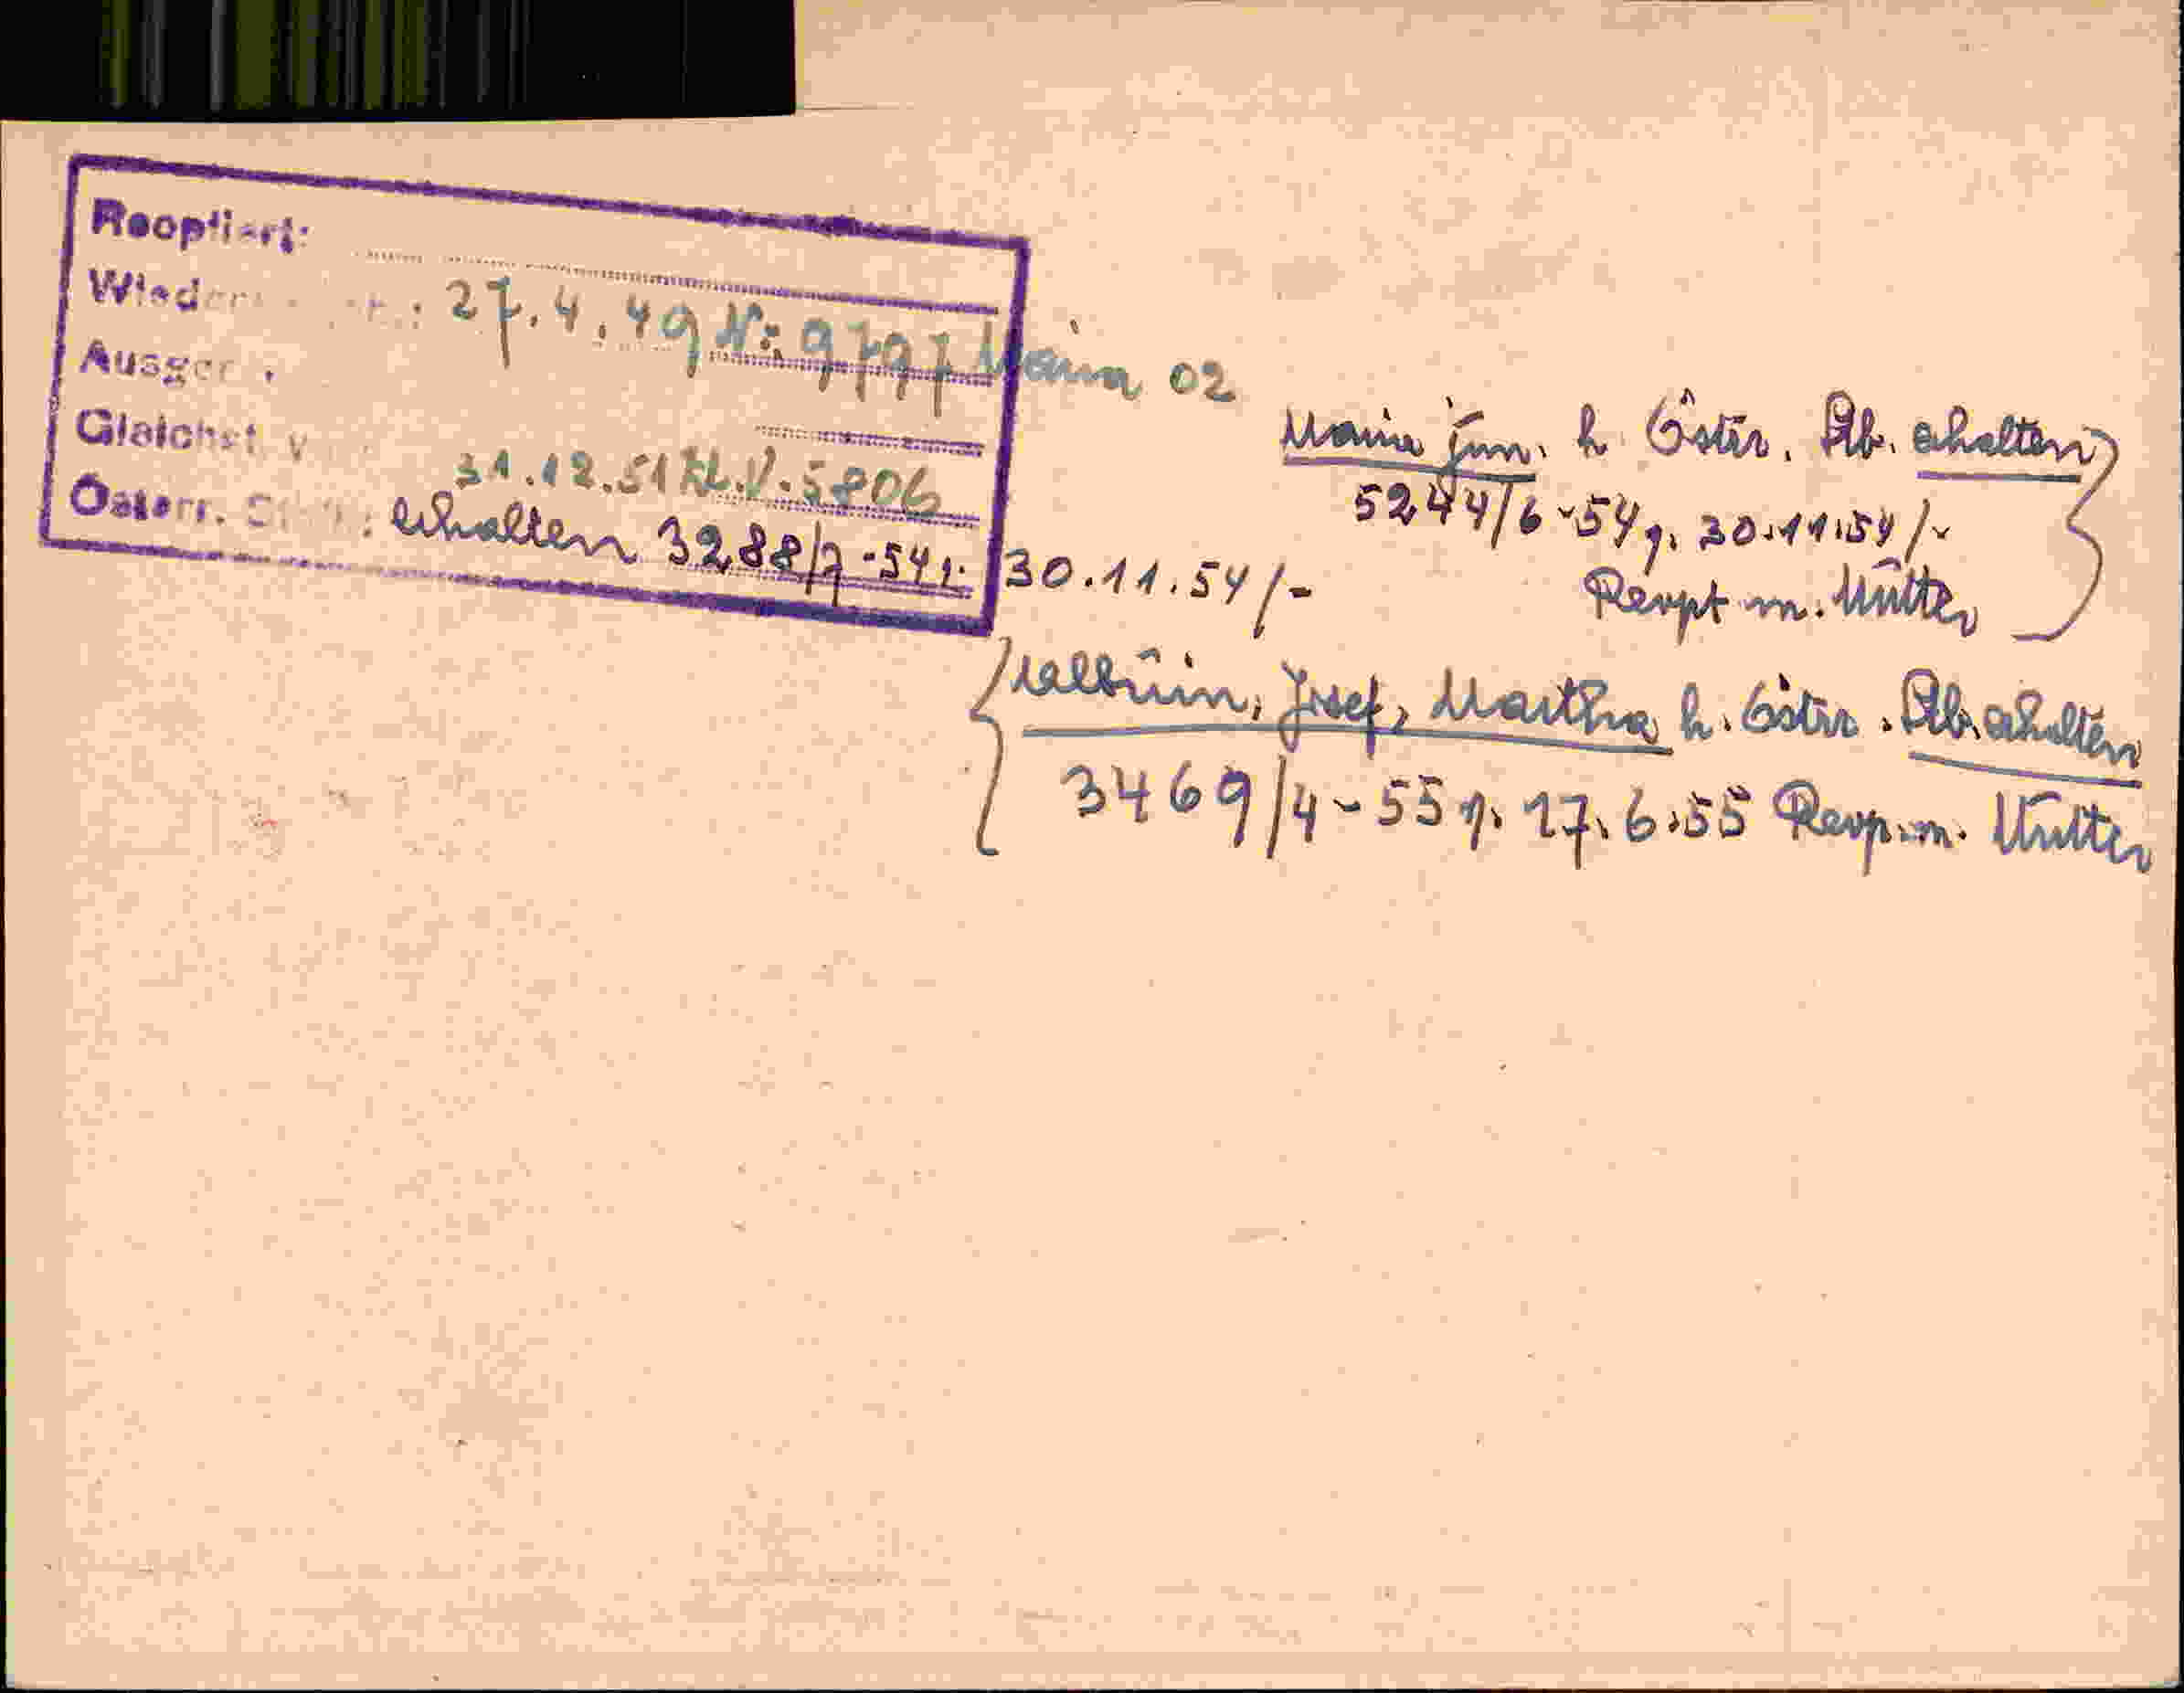 Reoptiert:
Wieder : 27.4.49 Nr. 9797 Maria 02
Ausger.
Gleichst. v.
31.12.51 Zl. V. 5806
Österr. : erhalten 3288/7-54 g. 30.11.54/-
Maria jun. h. Österr. Stb. erhalten
5244/6-54 g. 30.11.54/-
Reopt m. Mutter
Albuin, Josef, Martha h. Österr. Stb. erhalten
3469/4-55 g. 17.6.55 Reop. m. Mutter